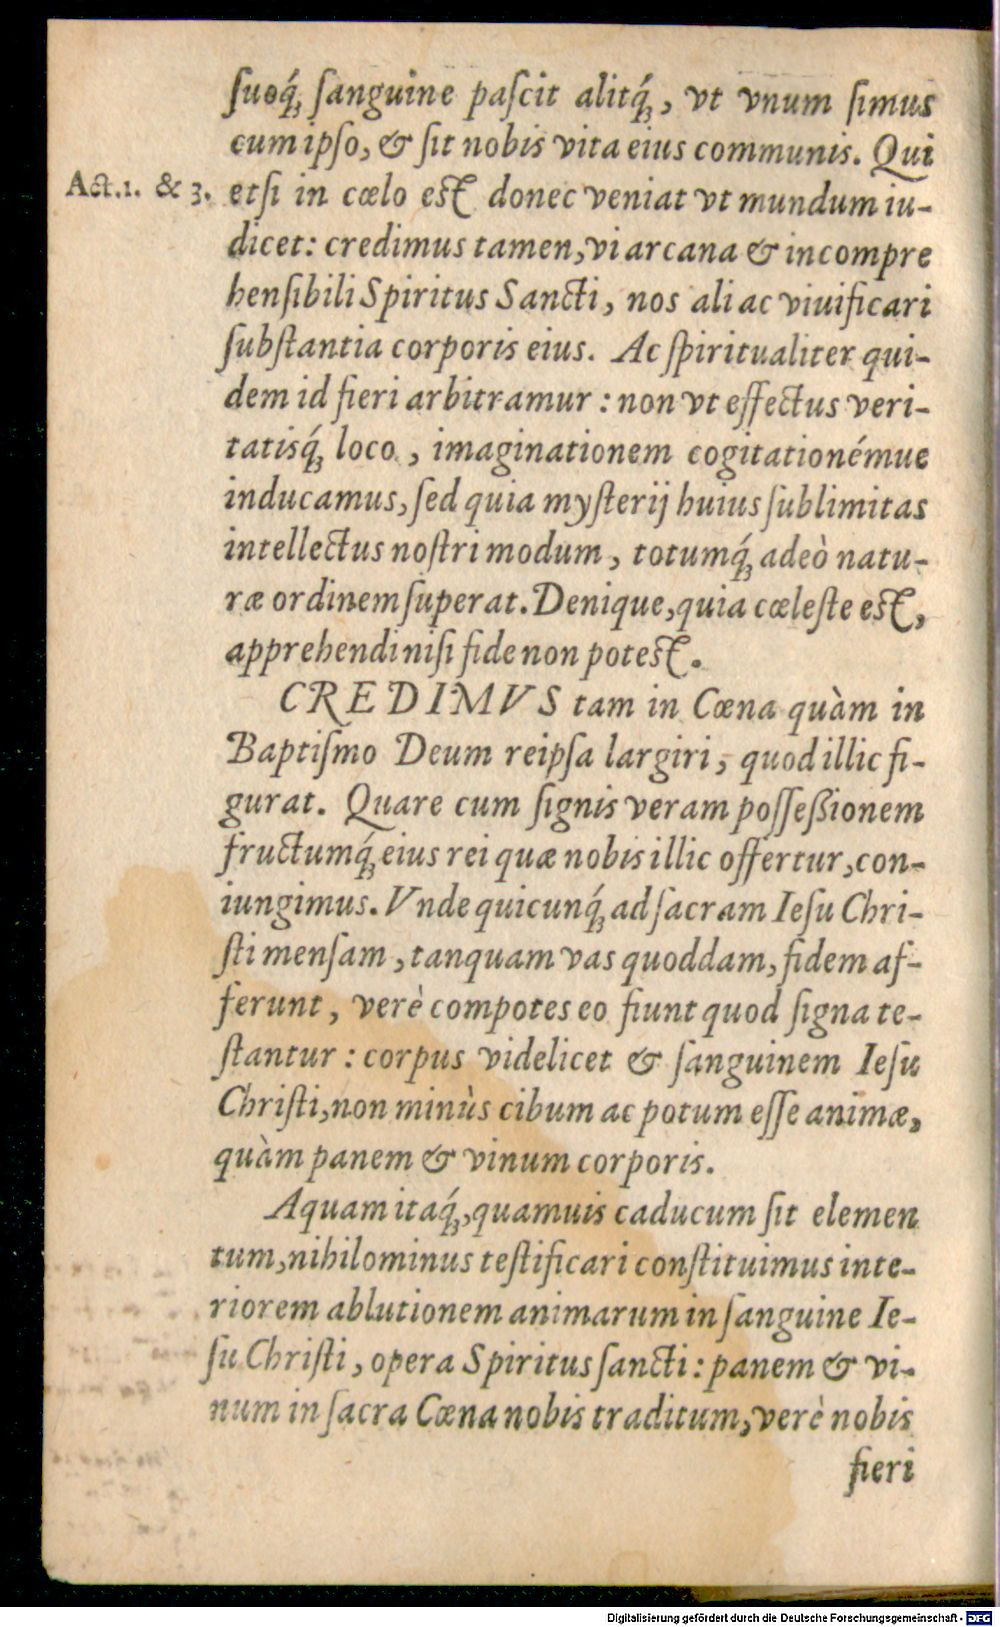 ſuoq́ꝫ ſanguine paſcit alitq́ꝫ, vt vnum ſimus
cum ipſo, & ſit nobis vita eius communis. Qui
Act.1. & 3.
etſi in cœlo est donec veniat vt mundum iu-
dicet: credimus tamen, vi arcana & incompre
henſibili Spiritus Sancti, nos ali ac viuificari
ſubſtantia corporis eius. Ac ſpiritualiter qui-
dem id fieri arbitramur: non vt effectus veri-
tatisq́ꝫ loco, imaginationem cogitationémue
inducamus, ſed quia myſterij huius ſublimitas
intellectus noſtri modum, totumq́ꝫ adeò natu-
ræ ordinem ſuperat. Denique, quia cœleſte est,
apprehendi niſi fide non potest.
CREDIMVS tam in Cœna quàm in
Baptiſmo Deum reipſa largiri, quod illic fi-
gurat. Quare cum ſignis veram poſſeßionem
fructumq́ꝫ eius rei quæ nobis illic offertur, con-
iungimus. Vnde quicunq́ꝫ ad ſacram Ieſu Chri-
ſti menſam, tanquam vas quoddam, fidem af-
ferunt, verè compotes eo fiunt quod ſigna te-
ſtantur: corpus videlicet & ſanguinem Ieſu
Chriſti, non minùs cibum ac potum eſſe animæ,
quàm panem & vinum corporis.
Aquam itaq́ꝫ, quamuis caducum ſit elemen
tum, nihilominus teſtificari conſtituimus inte-
riorem ablutionem animarum in ſanguine Ie-
ſu Chriſti, opera Spiritus ſancti: panem & vi-
num in ſacra Cœna nobis traditum, verè nobis
fieri
Digitalisierung gefördert durch die Deutsche Forschungsgemeinschaft - DFG